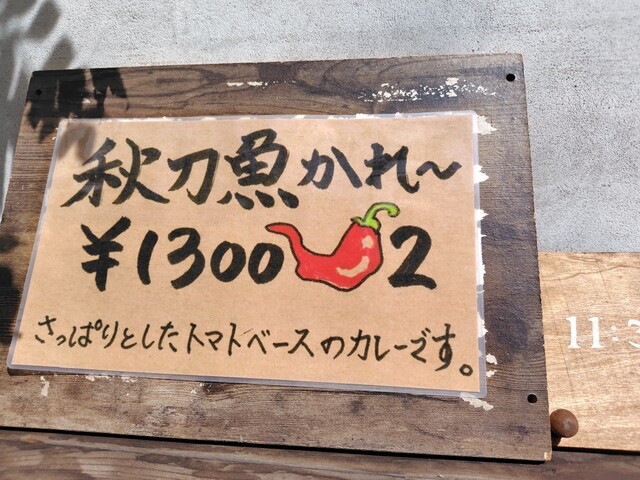 秋刀魚かれ〜
¥1300 2
さっぱりとしたトマトベースのカレーです。
11:3